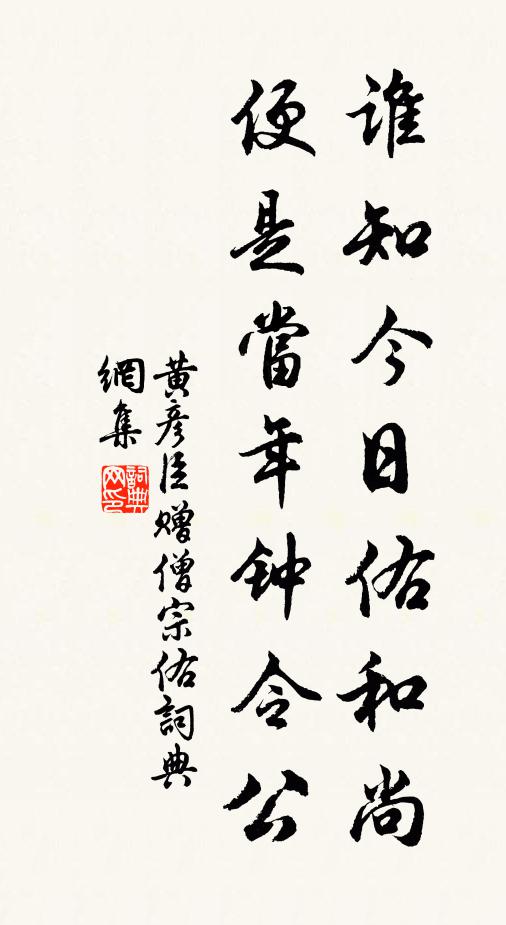 誰知今日佑和尚
便是當年钟令公
黃彦臣赠僧宗佑詞典
網集
詞典
网印